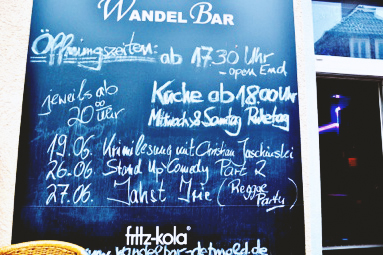 WANDEL BAR
Öffnungszeiten: ab 17.30 Uhr
- open End
jeweils ab
20⁰⁰ Uhr
Küche ab 18.00 Uhr
Mittwoch & Sonntag Ruhetag
19.06. Krimilesung mit Christian Jaschinski
26.06. Stand Up Comedy Part 2
27.06. Jahst Irie (Reggae Party)
fritz-kola®
www.wandelbar-detmold.de